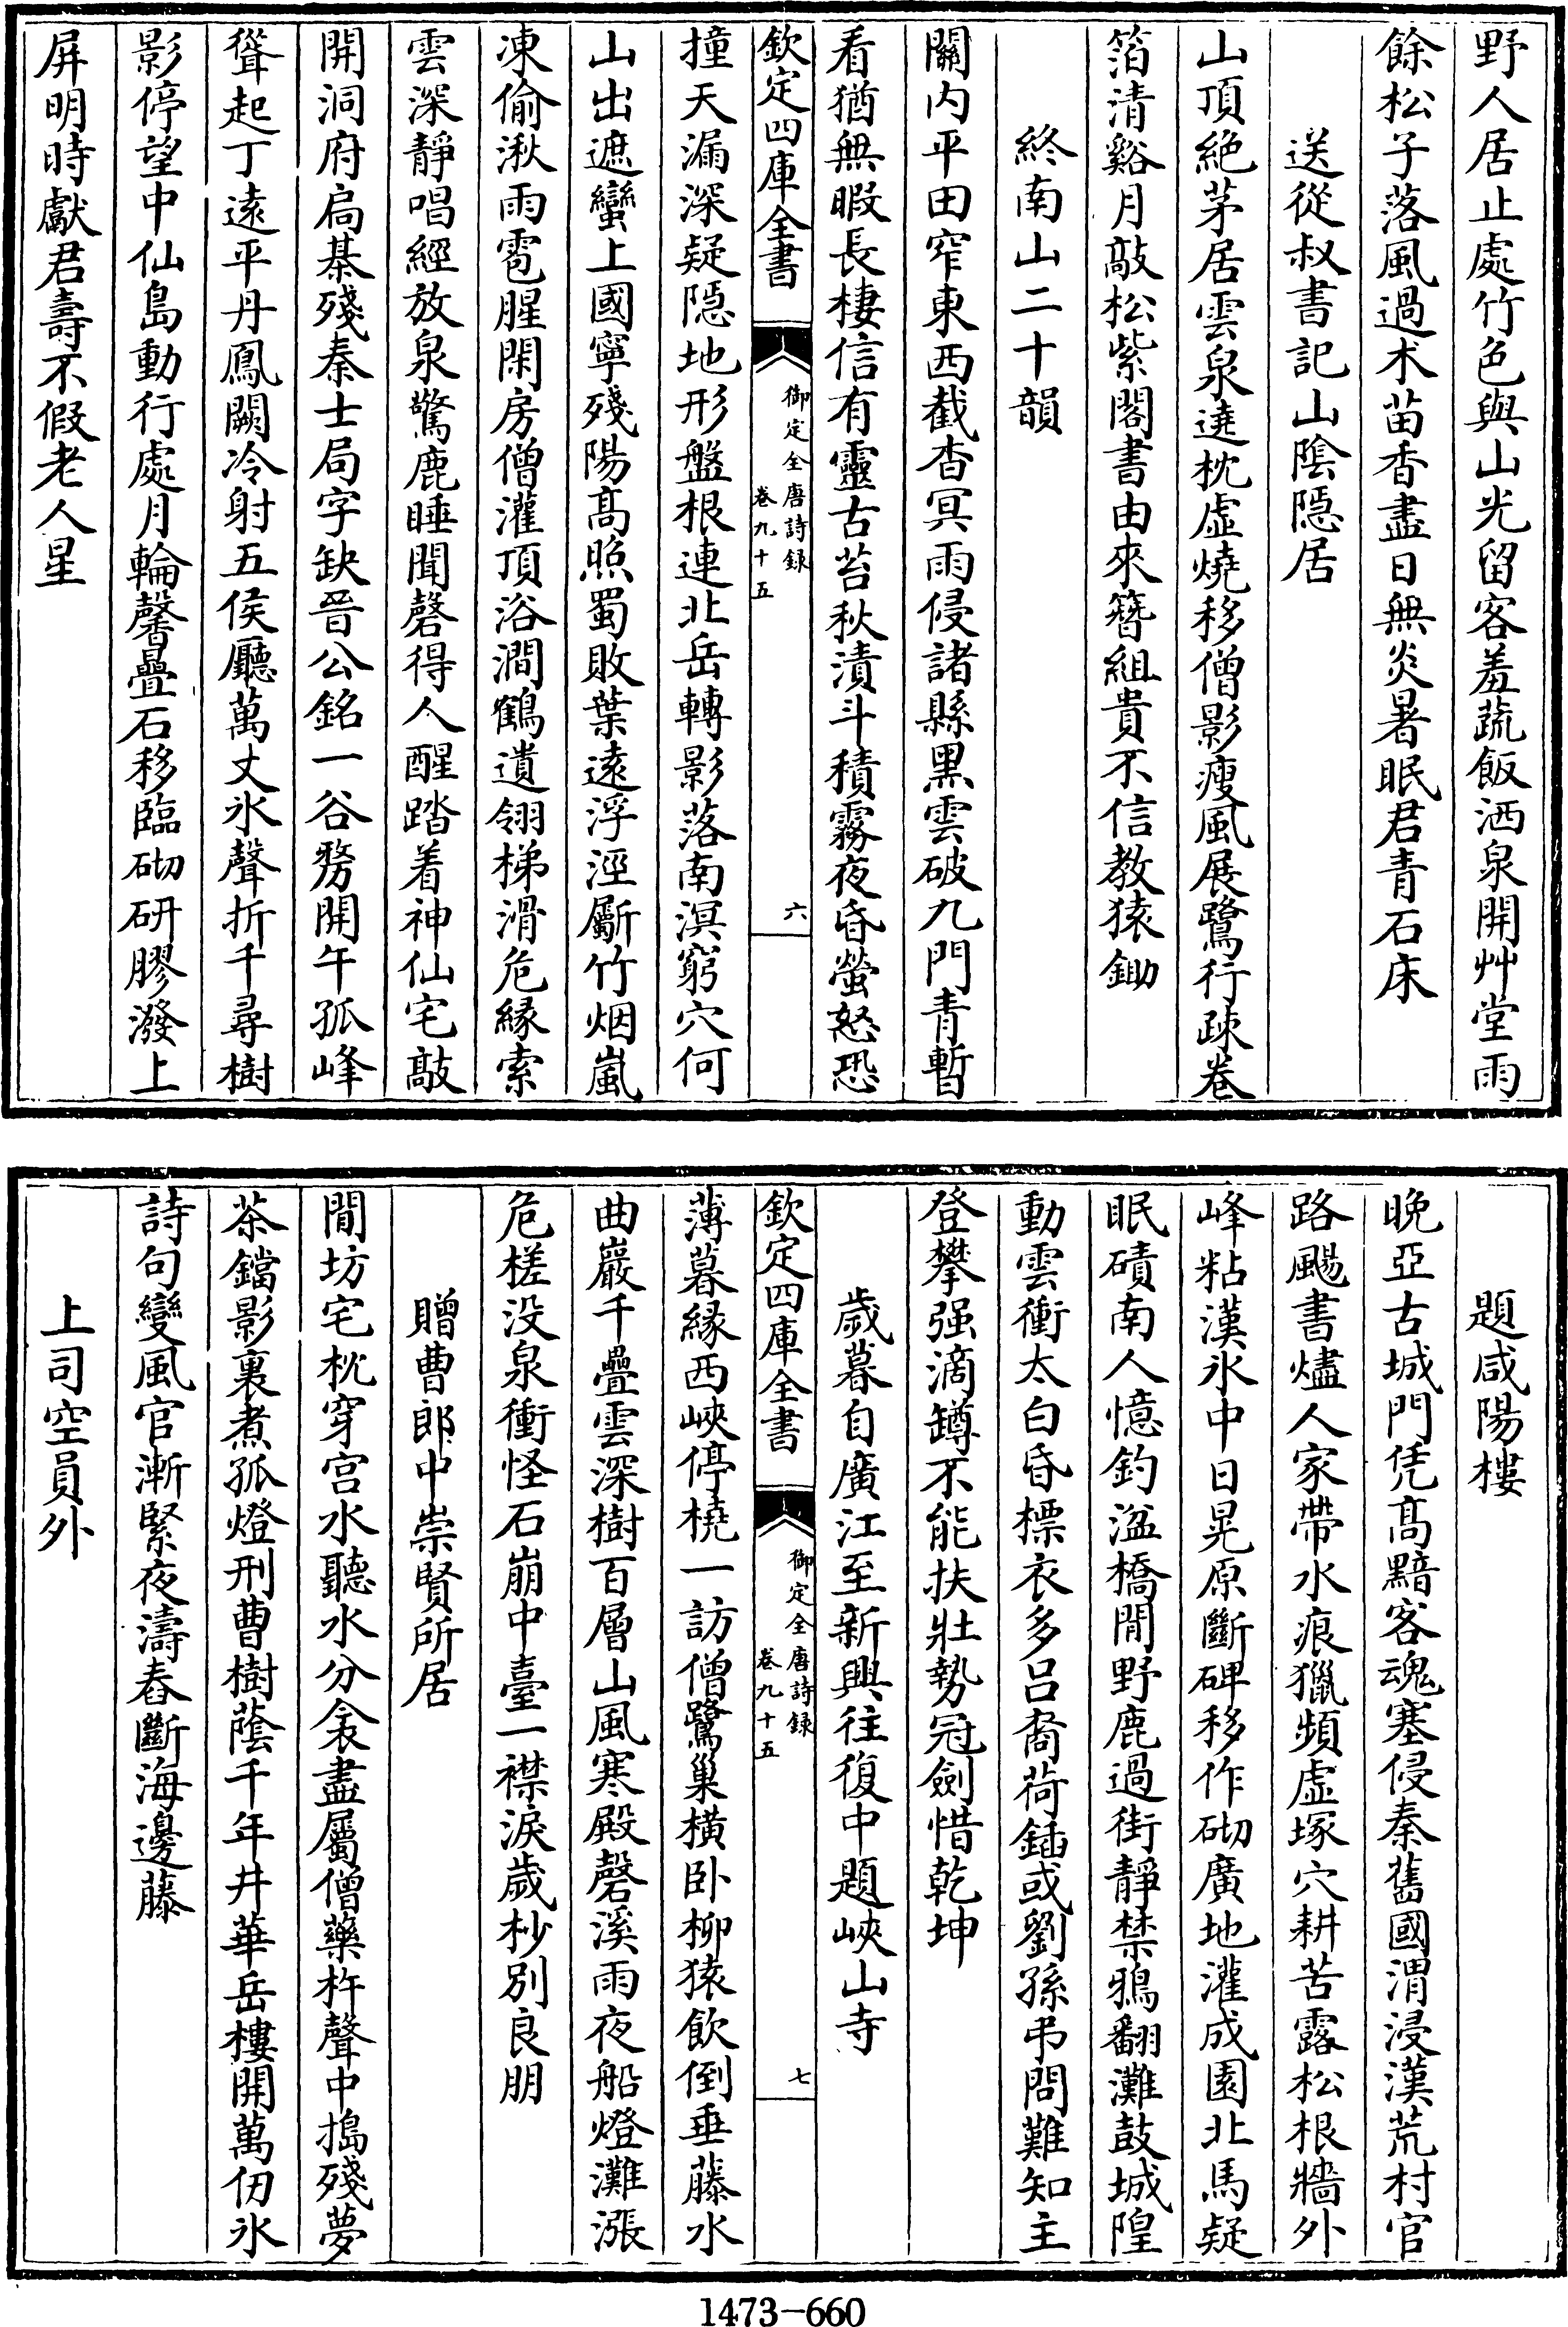 野人居止處竹色與山光留客羞蔬飯洒泉開艸堂雨
餘松子落風過术苗香盡日無炎暑眠君青石床
送從叔書記山陰隱居
山頂絶茅居雲泉遶枕虛燒移僧影瘦風展鷺行疎卷
箔清谿月敲松紫閣書由來簪組貴不信教猿鋤
終南山二十韻
關内平田窄東西截杳冥雨侵諸縣黒雲破九門青暫
看猶無暇長棲信有靈古苔秋漬斗積霧夜昏螢怒恐
欽定四庫全書
御定全唐詩録
卷九十五
六
撞天漏深疑隱地形盤根連北岳轉影落南溟窮穴何
山出遮蠻上國寧殘陽髙照蜀敗葉遠浮涇斸竹烟嵐
凍偷湫雨雹腥閑房僧灌頂浴澗鶴遺翎梯滑危緣索
雲深靜唱經放泉驚鹿睡聞磬得人醒踏着神仙宅敲
開洞府扃棊殘秦士局字缺晉公銘一谷勢開午孤峰
聳起丁遠平丹鳳闕冷射五侯廳萬丈氷聲折千尋樹
影停望中仙島動行處月輪馨疊石移臨砌研膠潑上
屏明時獻君壽不假老人星
題咸陽樓
晚亞古城門凭髙黯客魂塞侵秦舊國渭浸漢荒村官
路颺書燼人家帶水痕獵頻虛塚穴耕苦露松根牆外
峰粘漢氷中日晃原斷碑移作砌廣地灌成園北馬疑
眠磧南人憶釣湓橋閒野鹿過街靜禁鴉翻灘鼓城隍
動雲衝太白昏標衣多吕裔荷鍤或劉孫弔問難知主
登攀强滴罇不能扶壯勢冠劍惜乾坤
歲暮自廣江至新興往復中題峽山寺
欽定四庫全書
御定全唐詩録
卷九十五
七
薄暮緣西峽停橈一訪僧鷺巢横卧柳猿飲倒垂藤水
曲巖千疊雲深樹百層山風寒殿磬溪雨夜船燈灘漲
危槎没泉衝怪石崩中臺一襟淚歲杪別良朋
贈曹郎中崇賢所居
閒坊宅枕穿宫水聽水分衾盡屬僧藥杵聲中搗殘夢
茶鐺影裏煮孤燈刑曹樹蔭千年井華岳樓開萬仞氷
詩句變風官漸緊夜濤舂斷海邊藤
上司空員外
1473-660